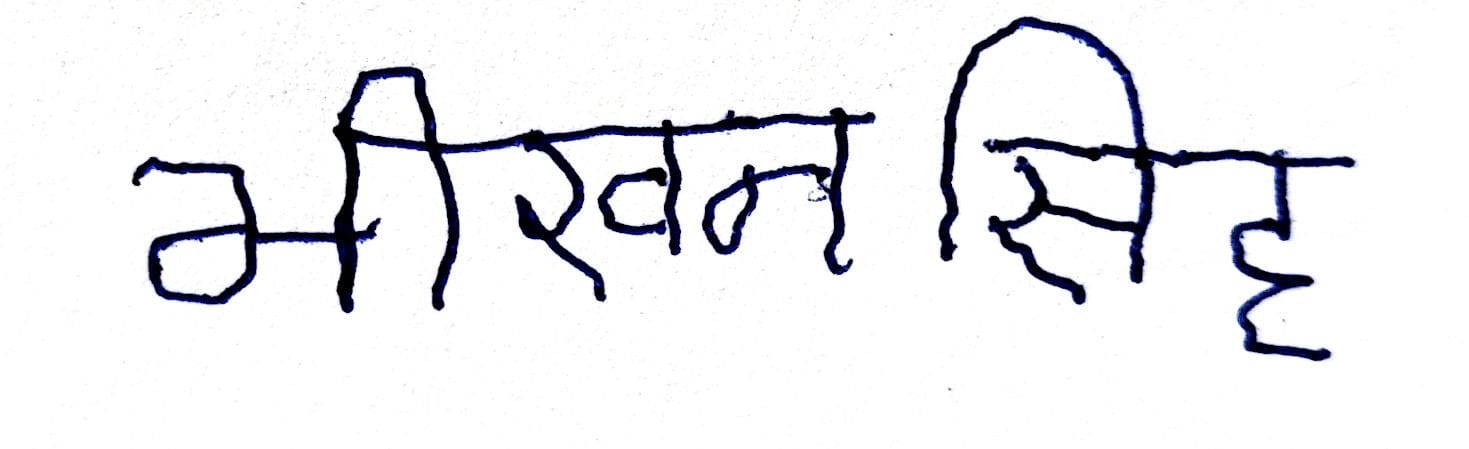 भीखन सिह